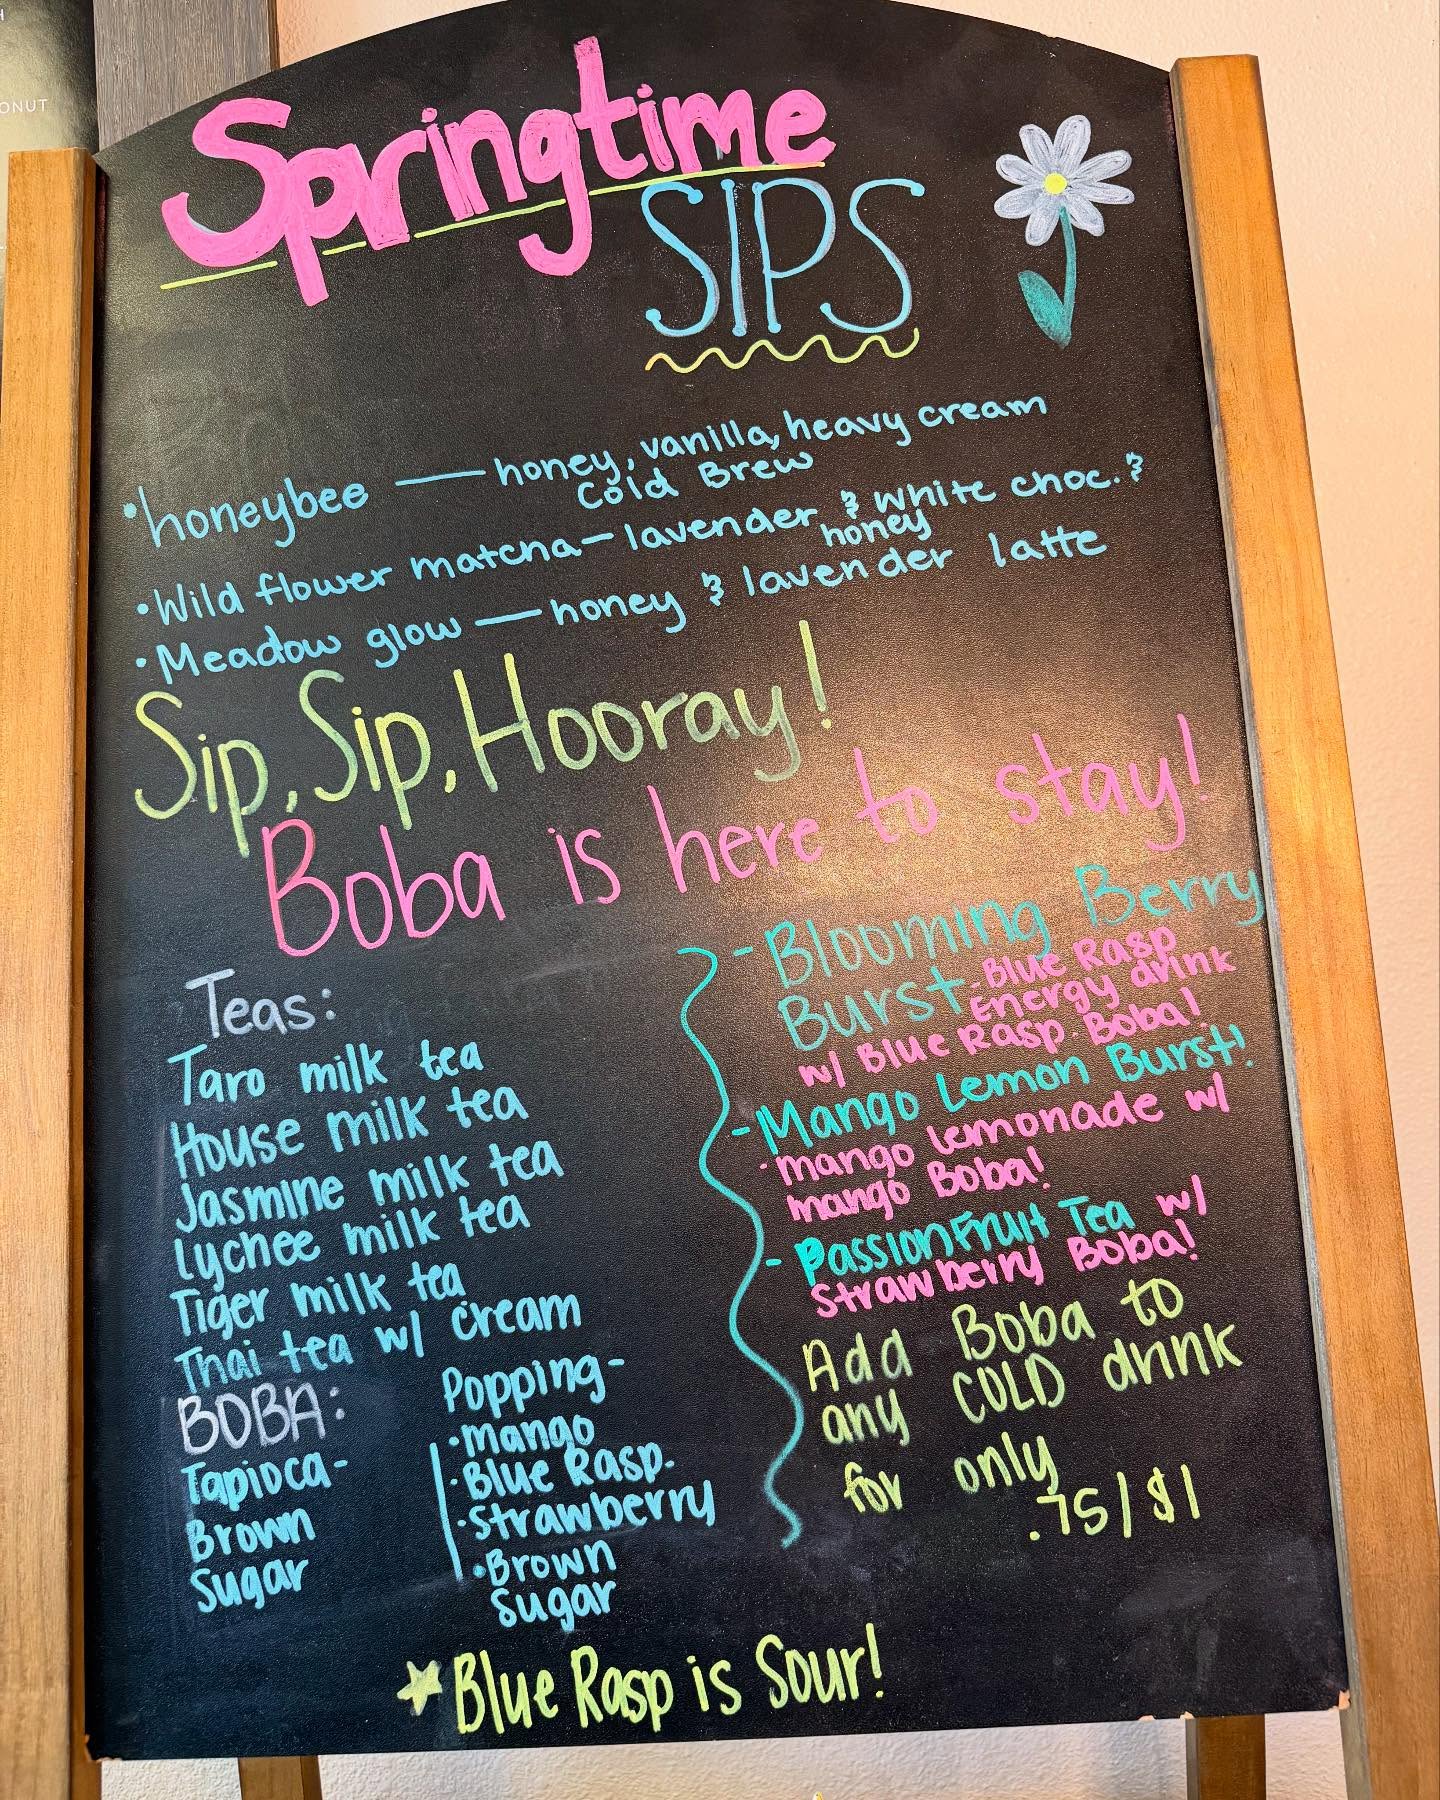 ONUT
Springtime
SIPS
•honeybee — honey, vanilla, heavy cream
Cold Brew
•Wild flower matcha — lavender & white choc. &
honey
•Meadow glow — honey & lavender latte
Sip, Sip, Hooray!
Boba is here to stay!
Teas:
Taro milk tea
House milk tea
Jasmine milk tea
Lychee milk tea
Tiger milk tea
Thai tea w/ cream
BOBA:
Tapioca-
Brown
Sugar
Popping-
•mango
•Blue Rasp.
•Strawberry
•Brown
Sugar
-Blooming Berry
Burst -Blue Rasp
Energy drink
w/ Blue Rasp. Boba!
-Mango Lemon Burst!
•mango lemonade w/
mango Boba!
-PassionFruit Tea w/
Strawberry Boba!
Add Boba to
any COLD drink
for only
.75/$1
★Blue Rasp is Sour!